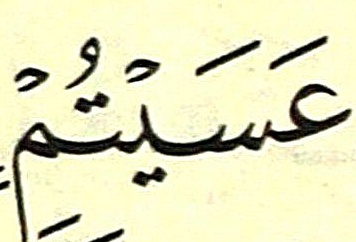 عَسَيْتُمْ